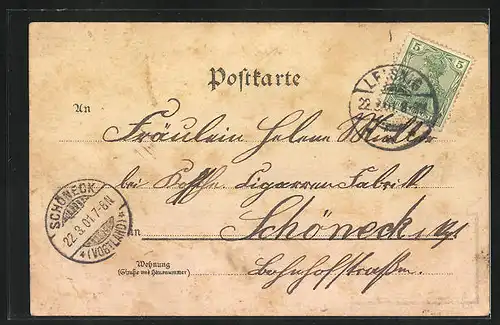 Postkarte
LEISNIG
22.8.01.
5 5
An
Fräulein Helene
bei Cigarren Fabrik
SCHÖNECK
22.8.01.7-8N
*(VOGTLAND)*
in Schöneck
Wohnung
(Straße und Hausnummer)
Bahnhofstraße.